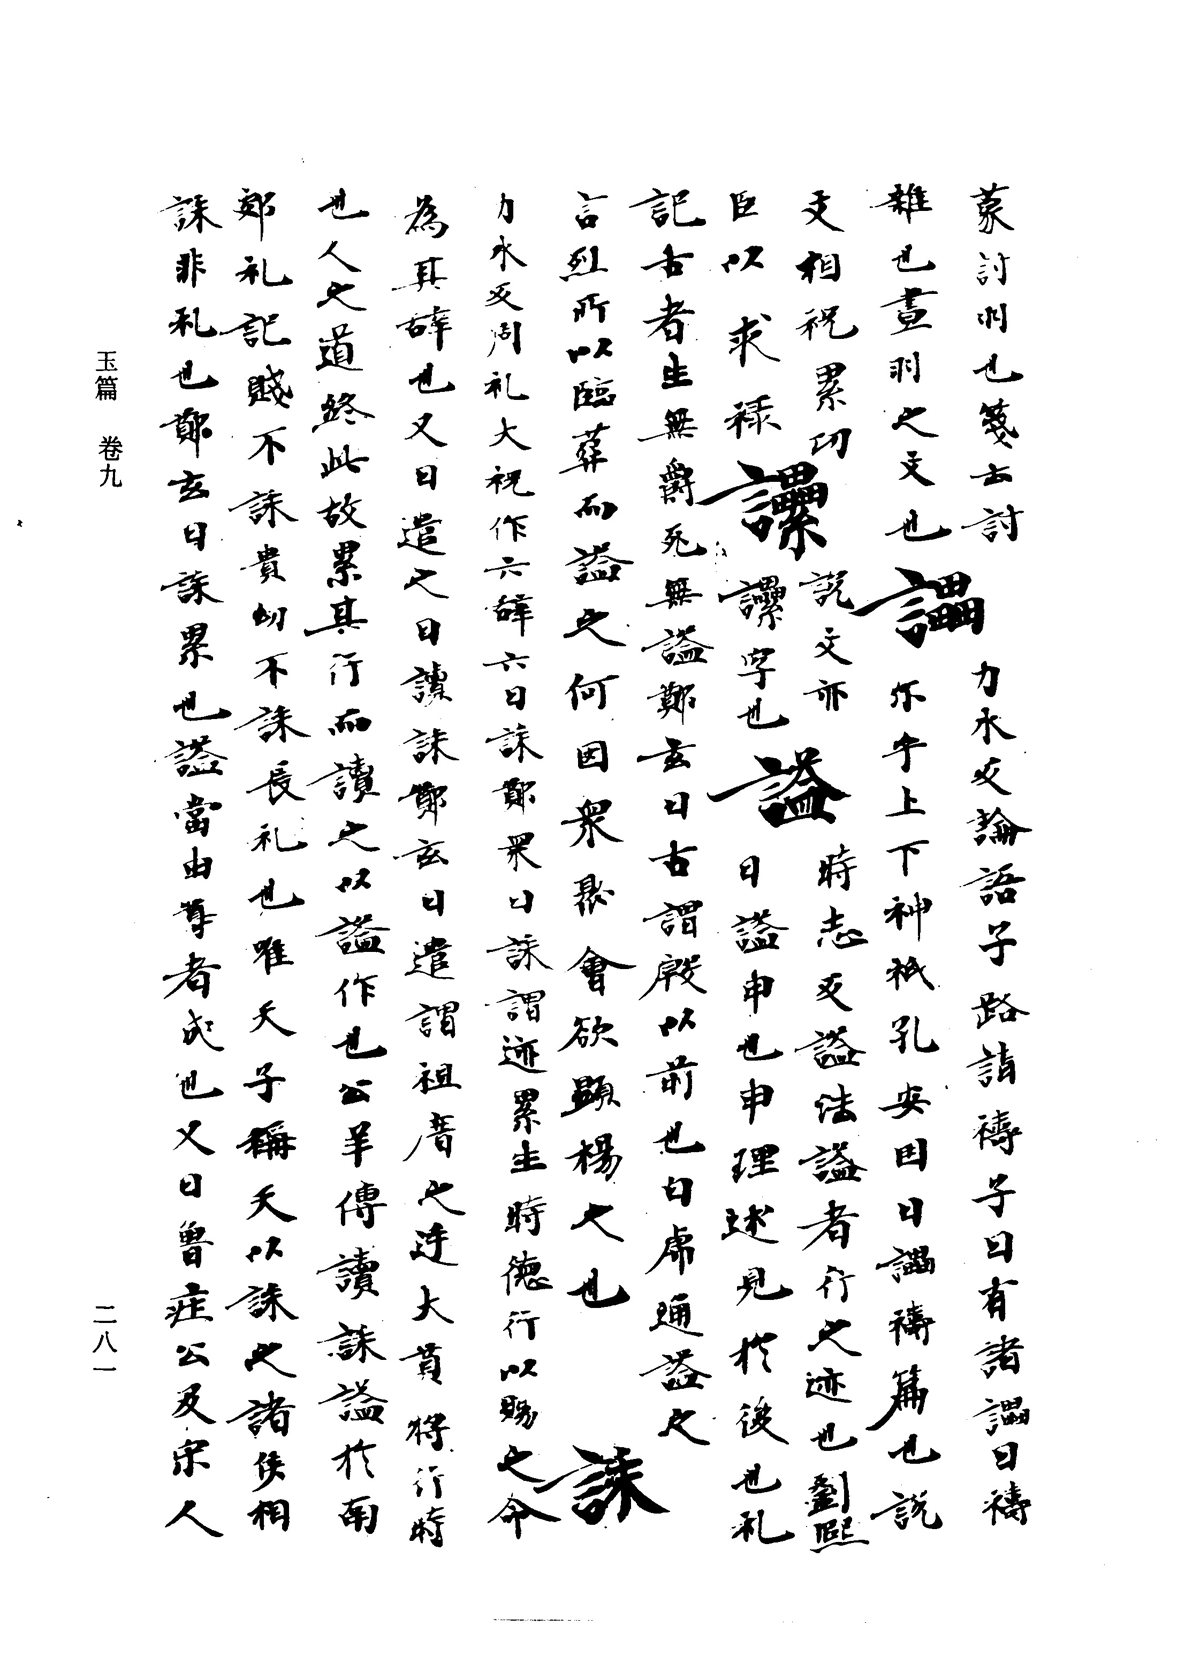 蒙討羽也箋云討
雜也畫羽之文也讄力水反論語子路請禱子曰有諸讄曰禱
尓乎上下神祇孔安囯曰讄禱篇也說
文相祝累功
臣以求祿讄說文亦
讄字也謚時志反謚法謚者行之迹也劉熙
曰謚申也申理述見於後也礼
記古者生無爵死無謚鄭玄曰古謂殷以前也白虎通謚之
言烈所以臨葬而謚之何因衆聚會欲顯楊之也誄
力水反周礼大祝作六辞六曰誄鄭衆曰誄謂迹累生時德行以賜之命
為其辞也又曰遣之日讀誄鄭玄曰遣謂祖廟之庭大遣將行時
也人之道終此故累其行而讀之以謚作也公羊傳讀誄謚於南
郊礼記賤不誄貴幼不誄長礼也唯天子稱天以誄之諸侯相
誄非礼也鄭玄曰誄累也謚當由尊者成也又曰魯庄公及宋人
玉篇 卷九
二八一